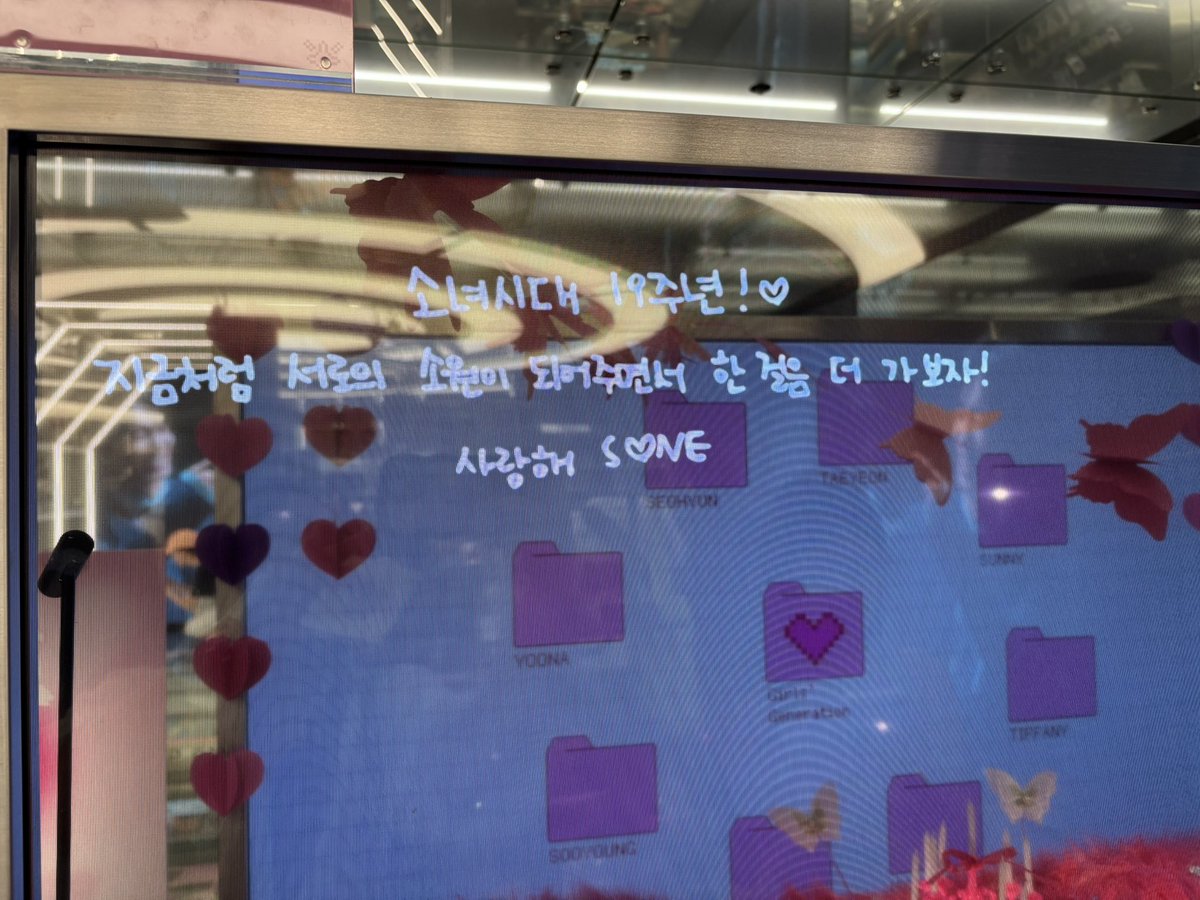 소녀시대 19주년!♡
지금처럼 서로의 소원이 되어주면서 한 걸음 더 가보자!
사랑해 S♡NE
SEOHYUN
TAEYEON
SUNNY
YOONA
Girls'
Generation
TIFFANY
SOOYOUNG